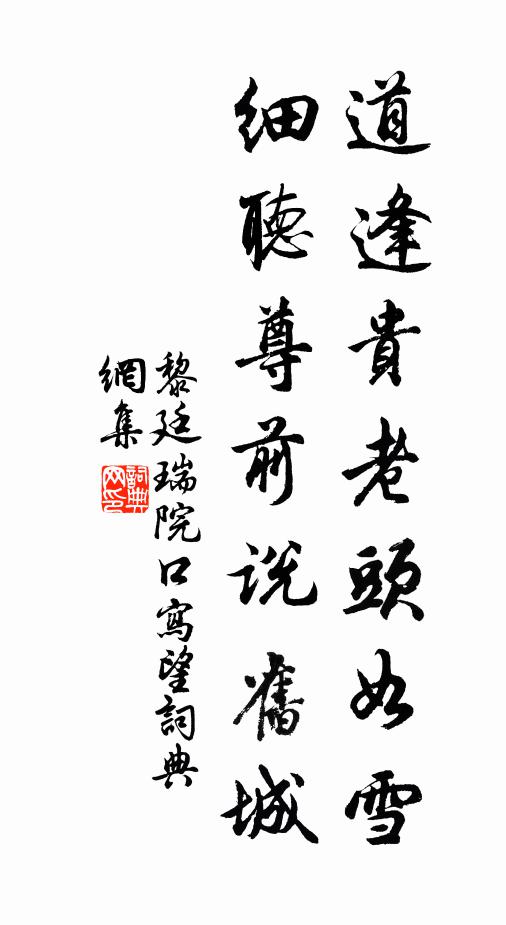 道逢貴老頭如雪
細聽尊前說舊城
黎廷瑞院口寫望詞典
網集
詞典網印